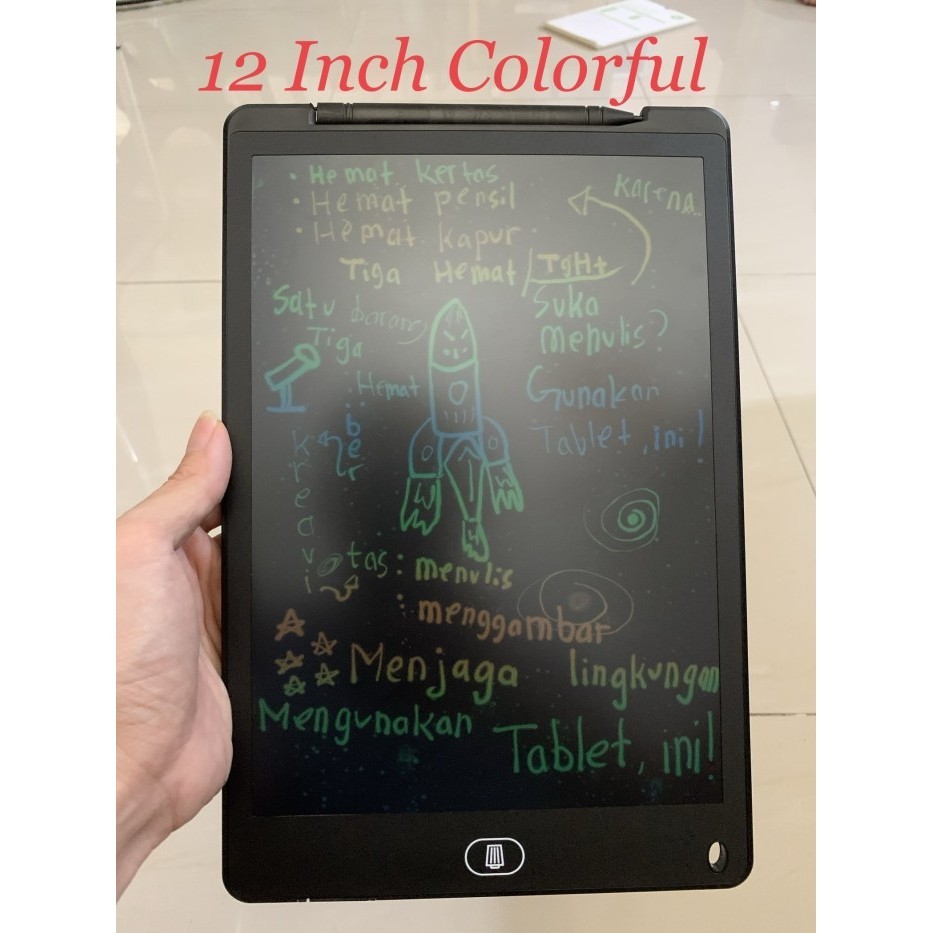 12 Inch Colorful
• Hemat kertas
• Hemat pensil
• Hemat kapur
Karena..
Tiga Hemat
TgHt
Satu barang
Tiga
Hemat
Suka
menulis?
Gunakan
Tablet, ini!
ber
kreavi
tas: menulis
: menggambar
Menjaga lingkungan
Mengunakan
Tablet, ini!